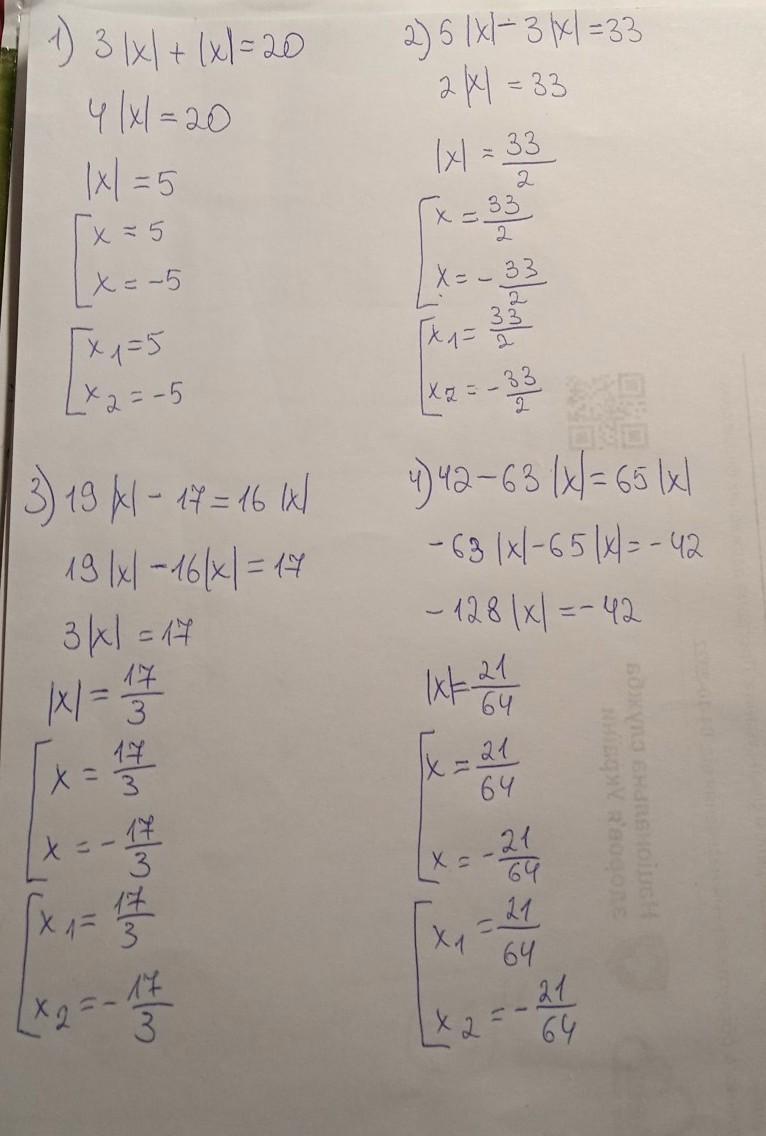 1) 3|x| + |x| = 20
4|x| = 20
|x| = 5
x = 5
x = -5
x₁ = 5
x₂ = -5
2) 5|x| - 3|x| = 33
2|x| = 33
|x| = 33/2
x = 33/2
x = -33/2
x₁ = 33/2
x₂ = -33/2
3) 19|x| - 17 = 16|x|
19|x| - 16|x| = 17
3|x| = 17
|x| = 17/3
x = 17/3
x = -17/3
x₁ = 17/3
x₂ = -17/3
4) 42 - 63|x| = 65|x|
-63|x| - 65|x| = -42
-128|x| = -42
|x| = 21/64
x = 21/64
x = -21/64
x₁ = 21/64
x₂ = -21/64
Національна служба
здоров'я України